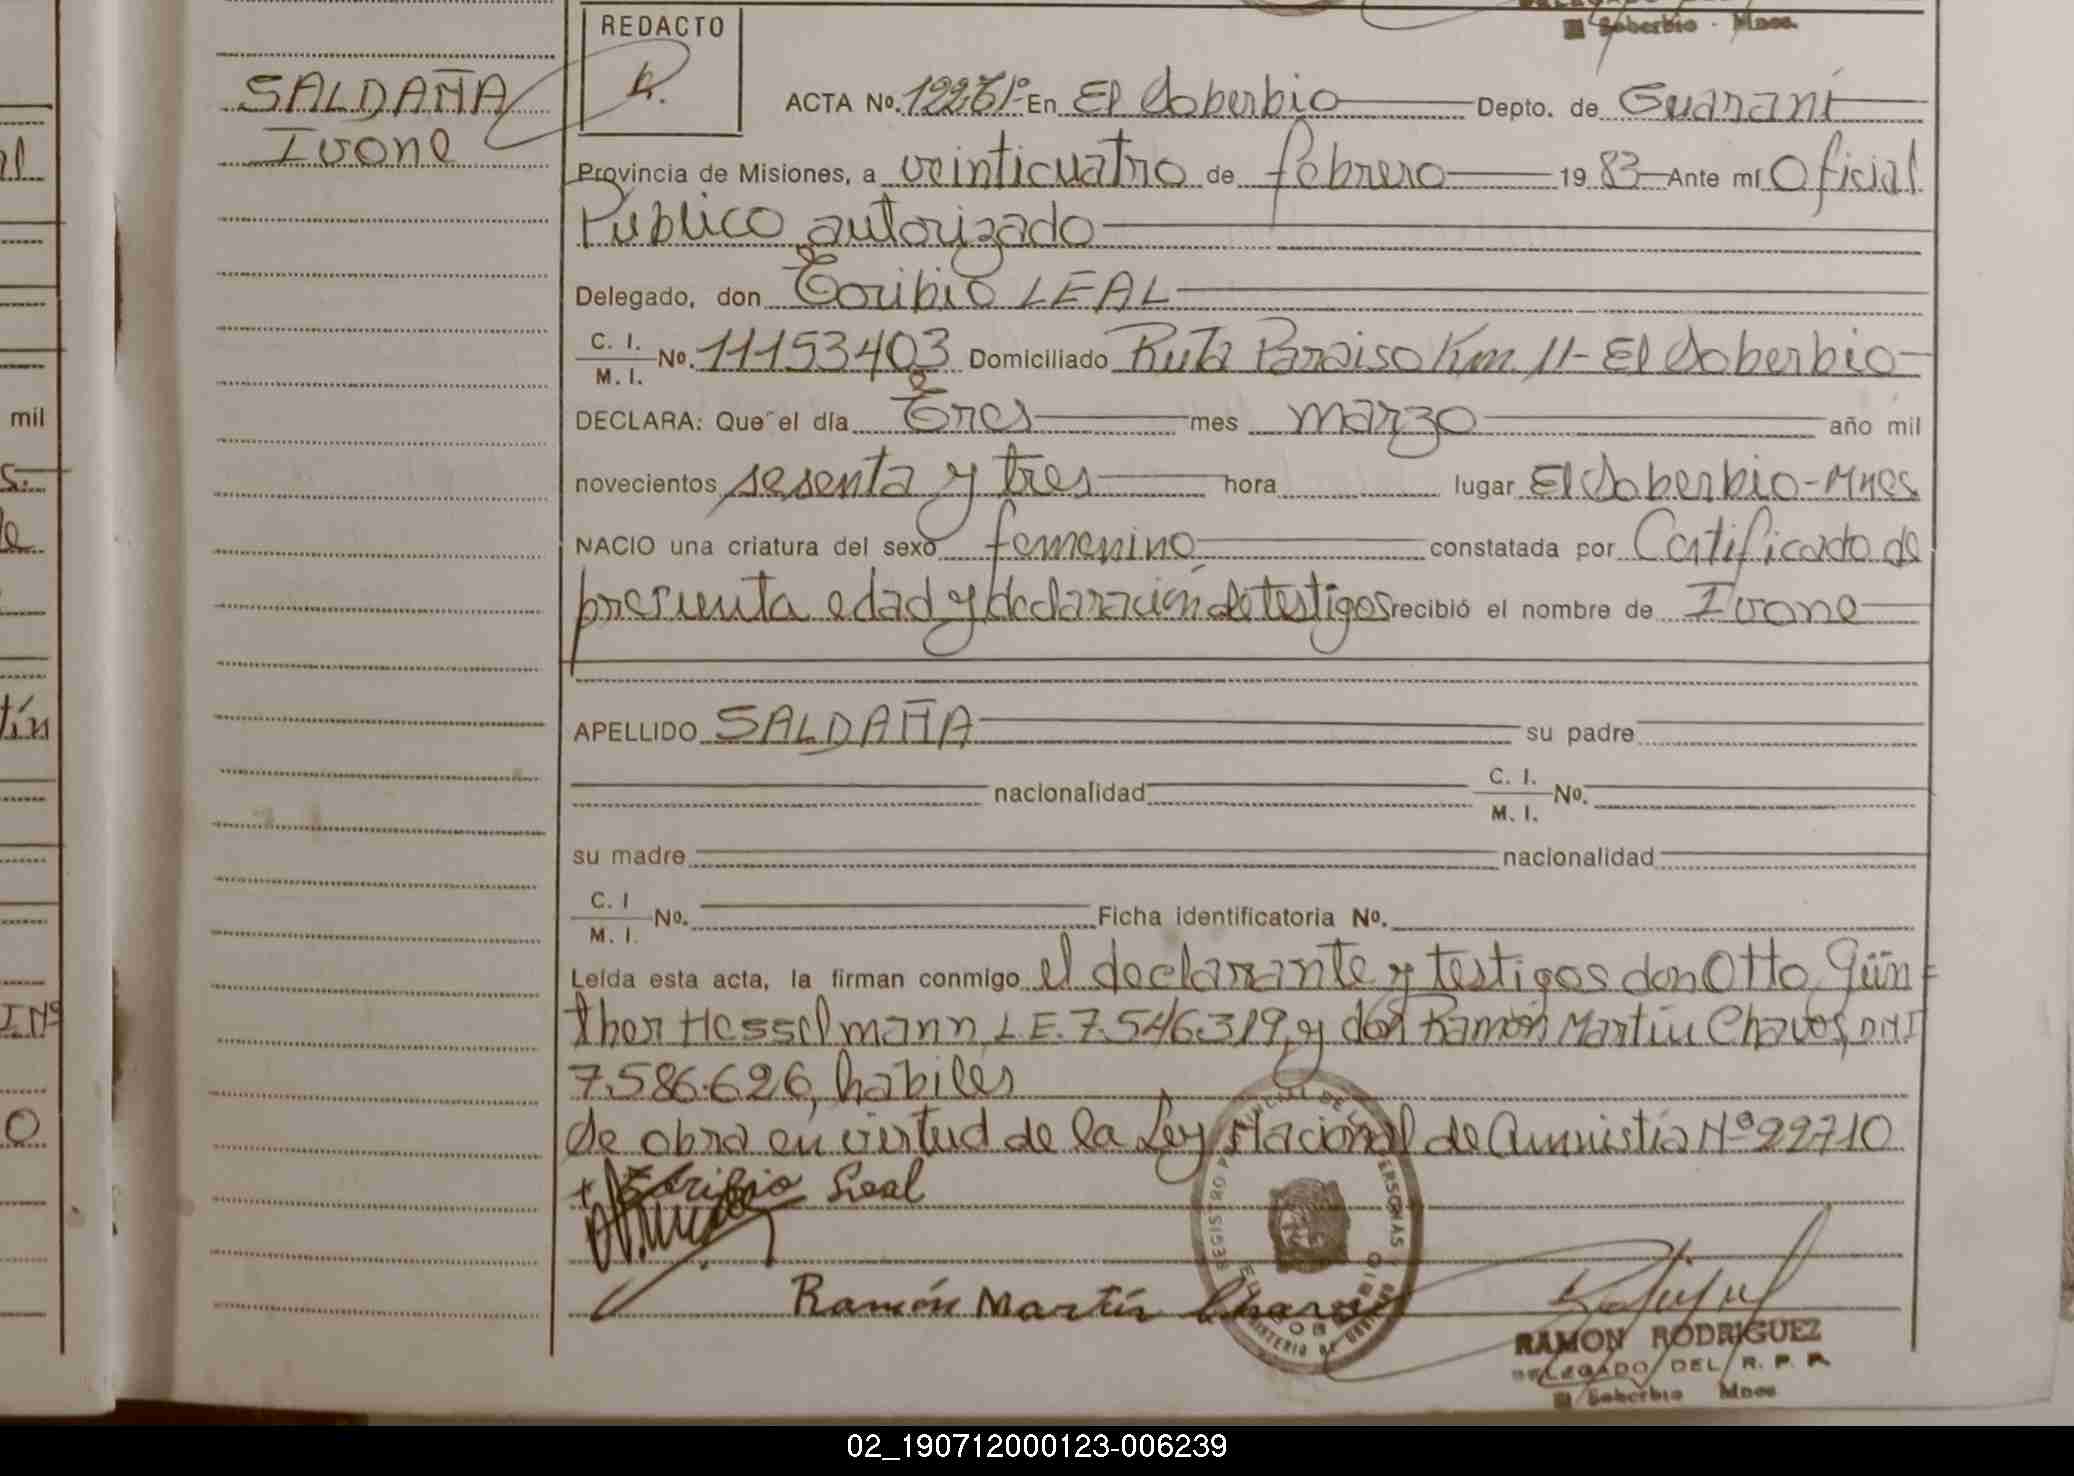 DELEGADO DEL
El Soberbio - Mnes.
REDACTO
SALDAÑA
Ivone
ACTA No. En El Soberbio Depto. de Guaraní
Provincia de Misiones, a veinticuatro de febrero 1983 Ante mí Oficial
Público autorizado
Delegado, don Toribio LEAL
C. I.
M. I. No. 11153403 Domiciliado Ruta Paraiso Km. 11- El Soberbio
DECLARA: Que el día Tres mes marzo año mil
novecientos sesenta y tres hora lugar El Soberbio-Mnes
NACIO una criatura del sexo femenino constatada por Certificado de
presunta edad y declaración de testigos recibió el nombre de Ivone
APELLIDO SALDAÑA su padre
nacionalidad C. I.
M. I. No.
su madre nacionalidad
C. I
M. I. No. Ficha identificatoria No.
Leída esta acta, la firman conmigo el declarante y testigos don Otto Gün=
ther Hesselmann L.E. 7.546.319, y don Ramón Martín Chaves, DNI
7.586.626, habiles
de obra en virtud de la Ley Nacional de Amnistia Nº 22710
Toribio Leal
Ramón Martín Chaves
REGISTRO PROVINCIAL DE LAS PERSONAS
EL SOBERBIO
MINISTERIO DE GOBIERNO
RAMON RODRIGUEZ
DELEGADO DEL R. P. P.
El Soberbio Mnes
mil
02_190712000123-006239